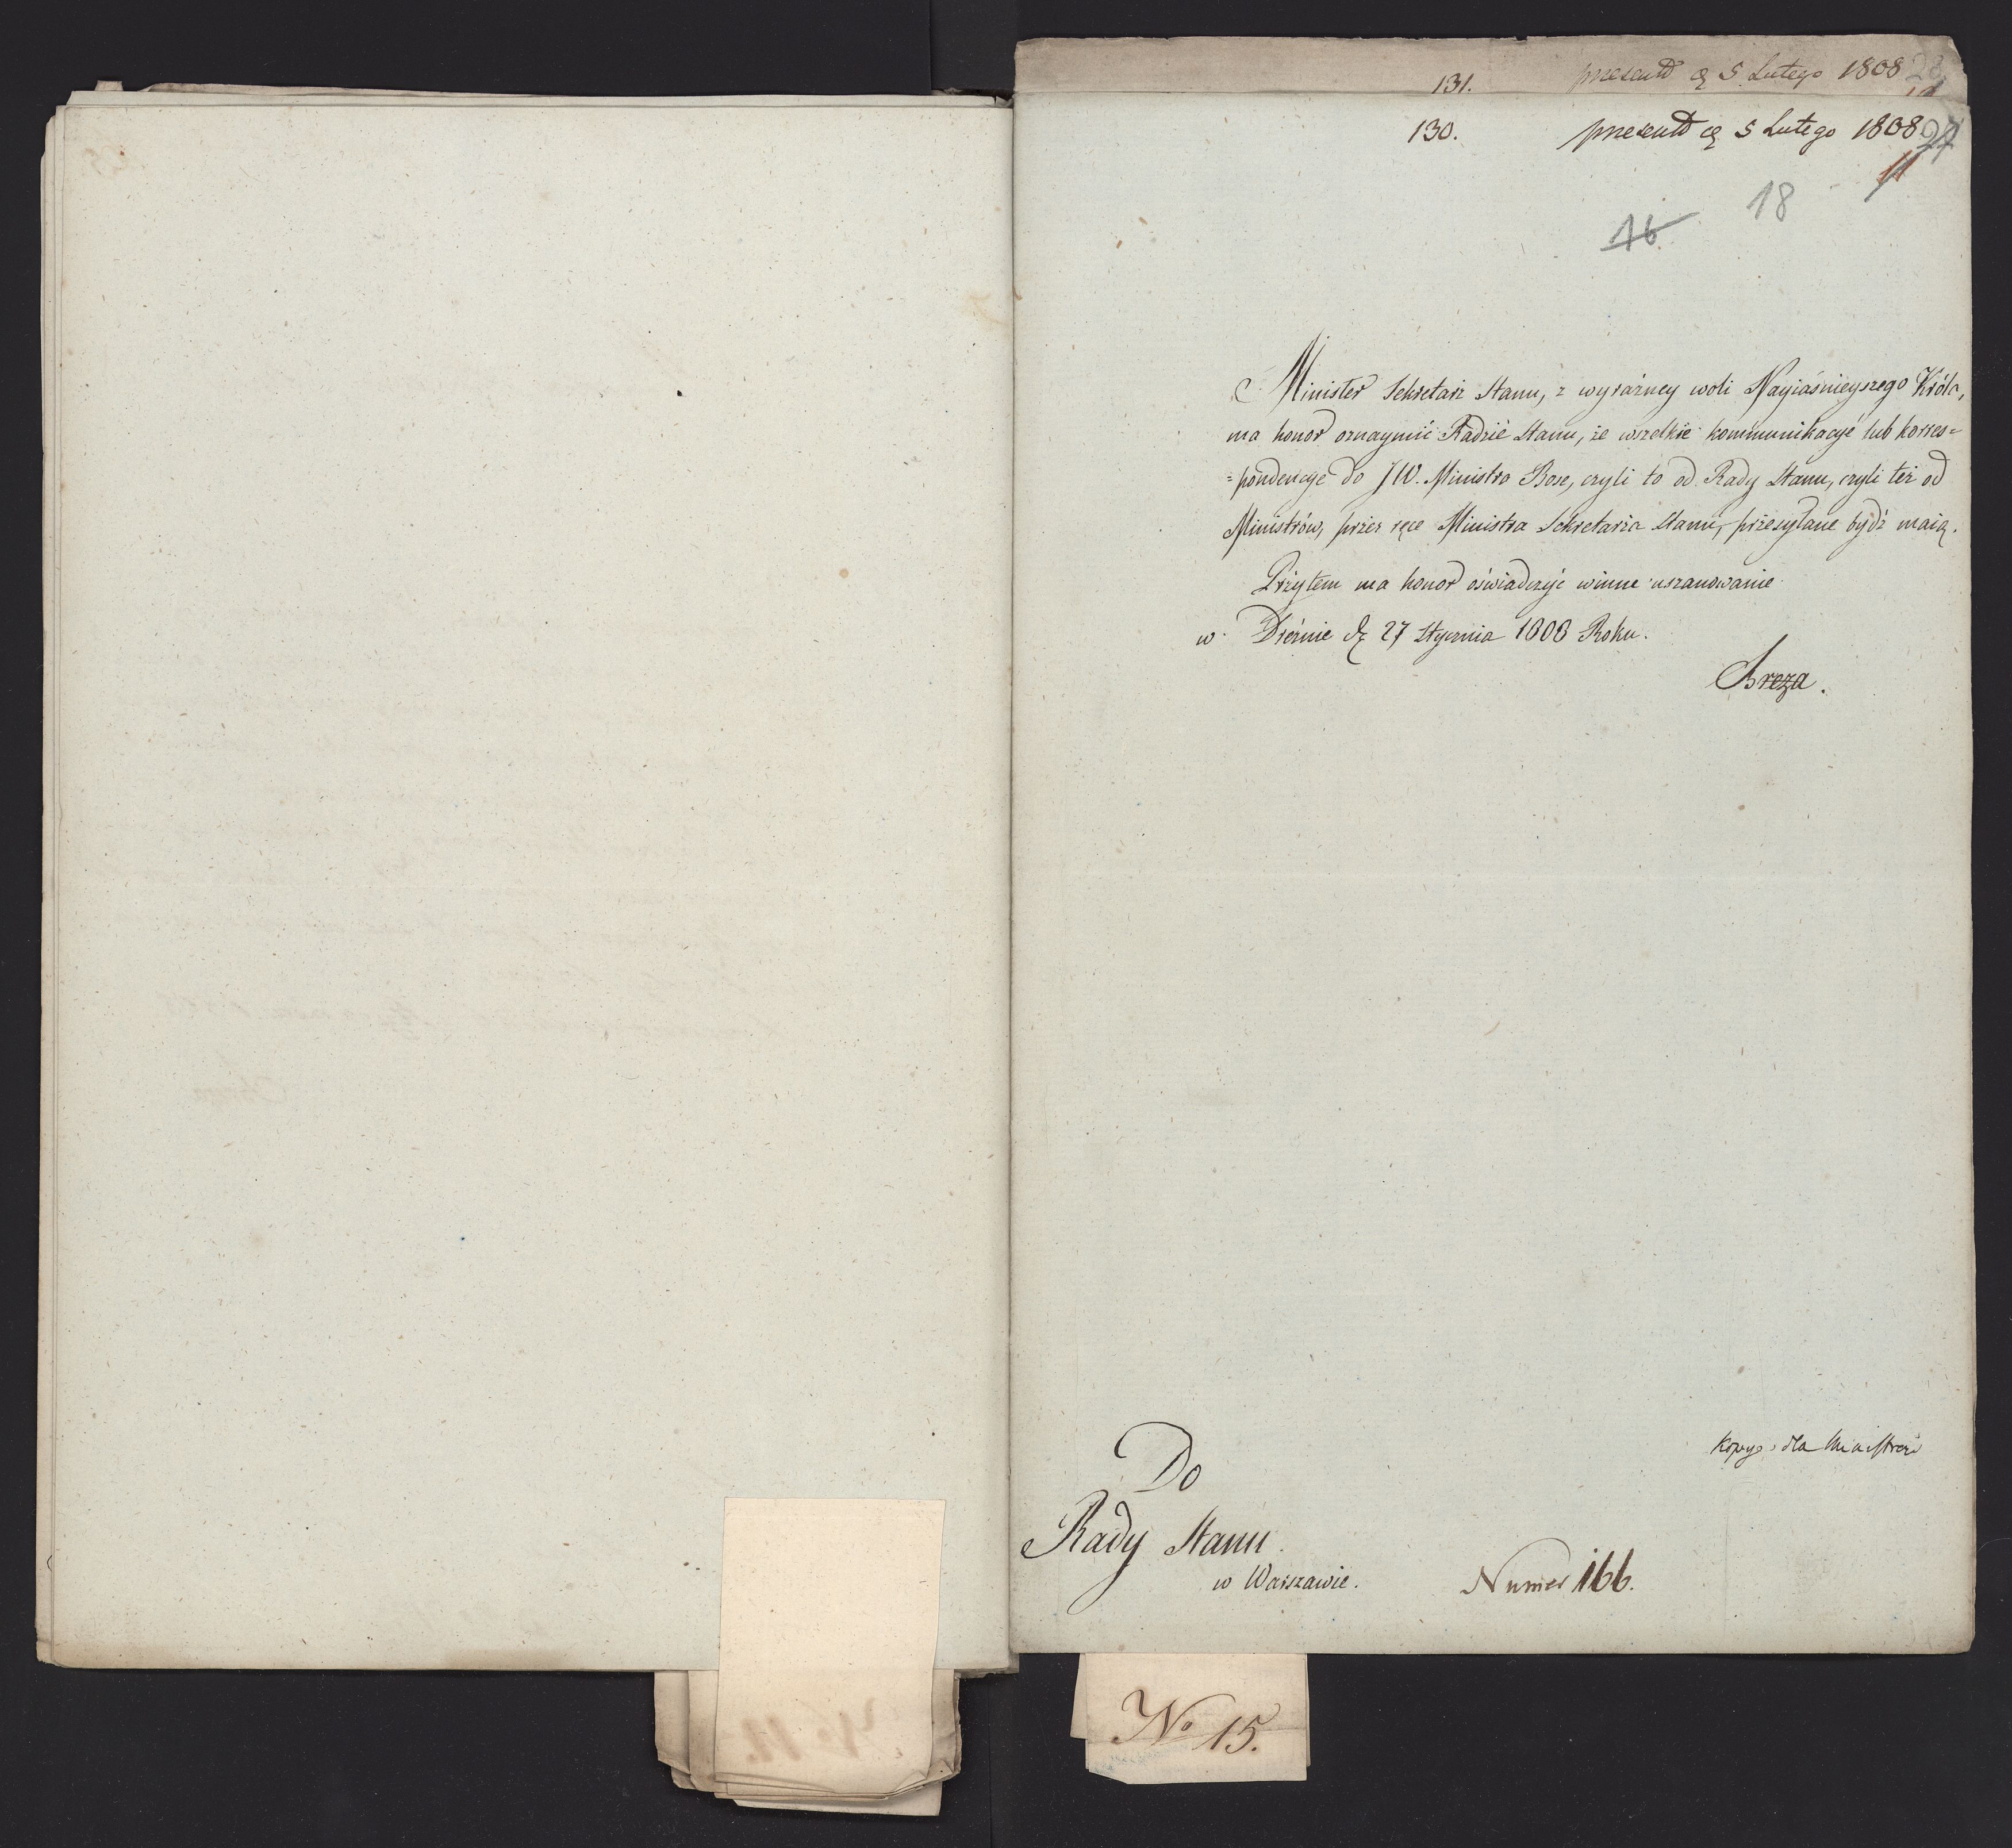 131. præsentt d. 5 Lutego 1808
130. præsentt d. 5 Lutego 1808 27
11
18
16
Minister Sekretarz Stanu, z wyraźney woli Nayiaśnieyszego Króla,
ma honor oznaymić Radzie Stanu, że wszelkie kommunikacye lub korres=
=pondencye do JW. Ministra Bose, czyli to od Rady Stanu, czyli też od
Ministrów, przez ręce Ministra Sekretarza Stanu, przesyłane bydź maią.
Przytem ma honor oświadczyć winne uszanowanie
w Dreźnie d. 27 Stycznia 1808 Roku.
Breza.
kopye dla Ministrów
Do
Rady Stanu
w Warszawie.
Numer 166.
No 15.